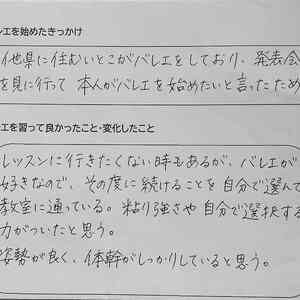 レエを始めたきっかけ
他県に住むいとこがバレエをしており、発表会
を見に行って 本人がバレエを始めたいと言ったため
エを習って良かったこと・変化したこと
レッスンに行きたくない時もあるが、バレエが
好きなので、その度に続けることを自分で選んで
教室に通っている。粘り強さや自分で選択する
力がついたと思う。
姿勢が良く、体幹がしっかりしていると思う。